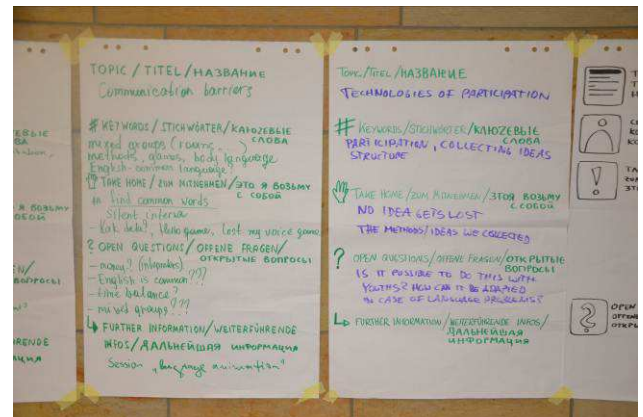 TOPIC / TITEL / НАЗВАНИЕ
Communication barriers
# KEYWORDS / STICHWÖRTER / КЛЮЗЕВЫЕ
СЛОВА
mixed groups
methods, games, body language
English-common language?
TAKE HOME / ZUM MITNEHMEN / ЭТО Я ВОЗЬМУ
С СОБОЙ
find common words
Silent
lost my voice game
? OPEN QUESTIONS / OFFENE FRAGEN /
ОТКРЫТЫЕ ВОПРОСЫ
- money?
- English is common???
- time balance?
- mixed groups???
FURTHER INFORMATION / WEITERFÜHRENDE
INFOS / ДАЛЬНЕЙШАЯ ИНФОРМАЦИЯ
Session „language animation"
TOPIC / TITEL / НАЗВАНИЕ
TECHNOLOGIES OF PARTICIPATION
# KEYWORDS / STICHWÖRTER / КЛЮЗЕВЫЕ
СЛОВА
PARTICIPATION, COLLECTING IDEAS
STRUCTURE
TAKE HOME / ZUM MITNEHMEN / ЭТО Я ВОЗЬМУ
С СОБОЙ
NO IDEA GETS LOST
THE METHODS / IDEAS WE COLLECTED
? OPEN QUESTIONS / OFFENE FRAGEN / ОТКРЫТЫЕ
ВОПРОСЫ
IS IT POSSIBLE TO DO THIS WITH
YOUTHS? HOW CAN IT BE ADAPTED
IN CASE OF LANGUAGE PROBLEMS?
FURTHER INFORMATION / WEITERFÜHRENDE INFOS /
ДАЛЬНЕЙШАЯ
ИНФОРМАЦИЯ
OPEN
OFFENE
ОТКРЫ